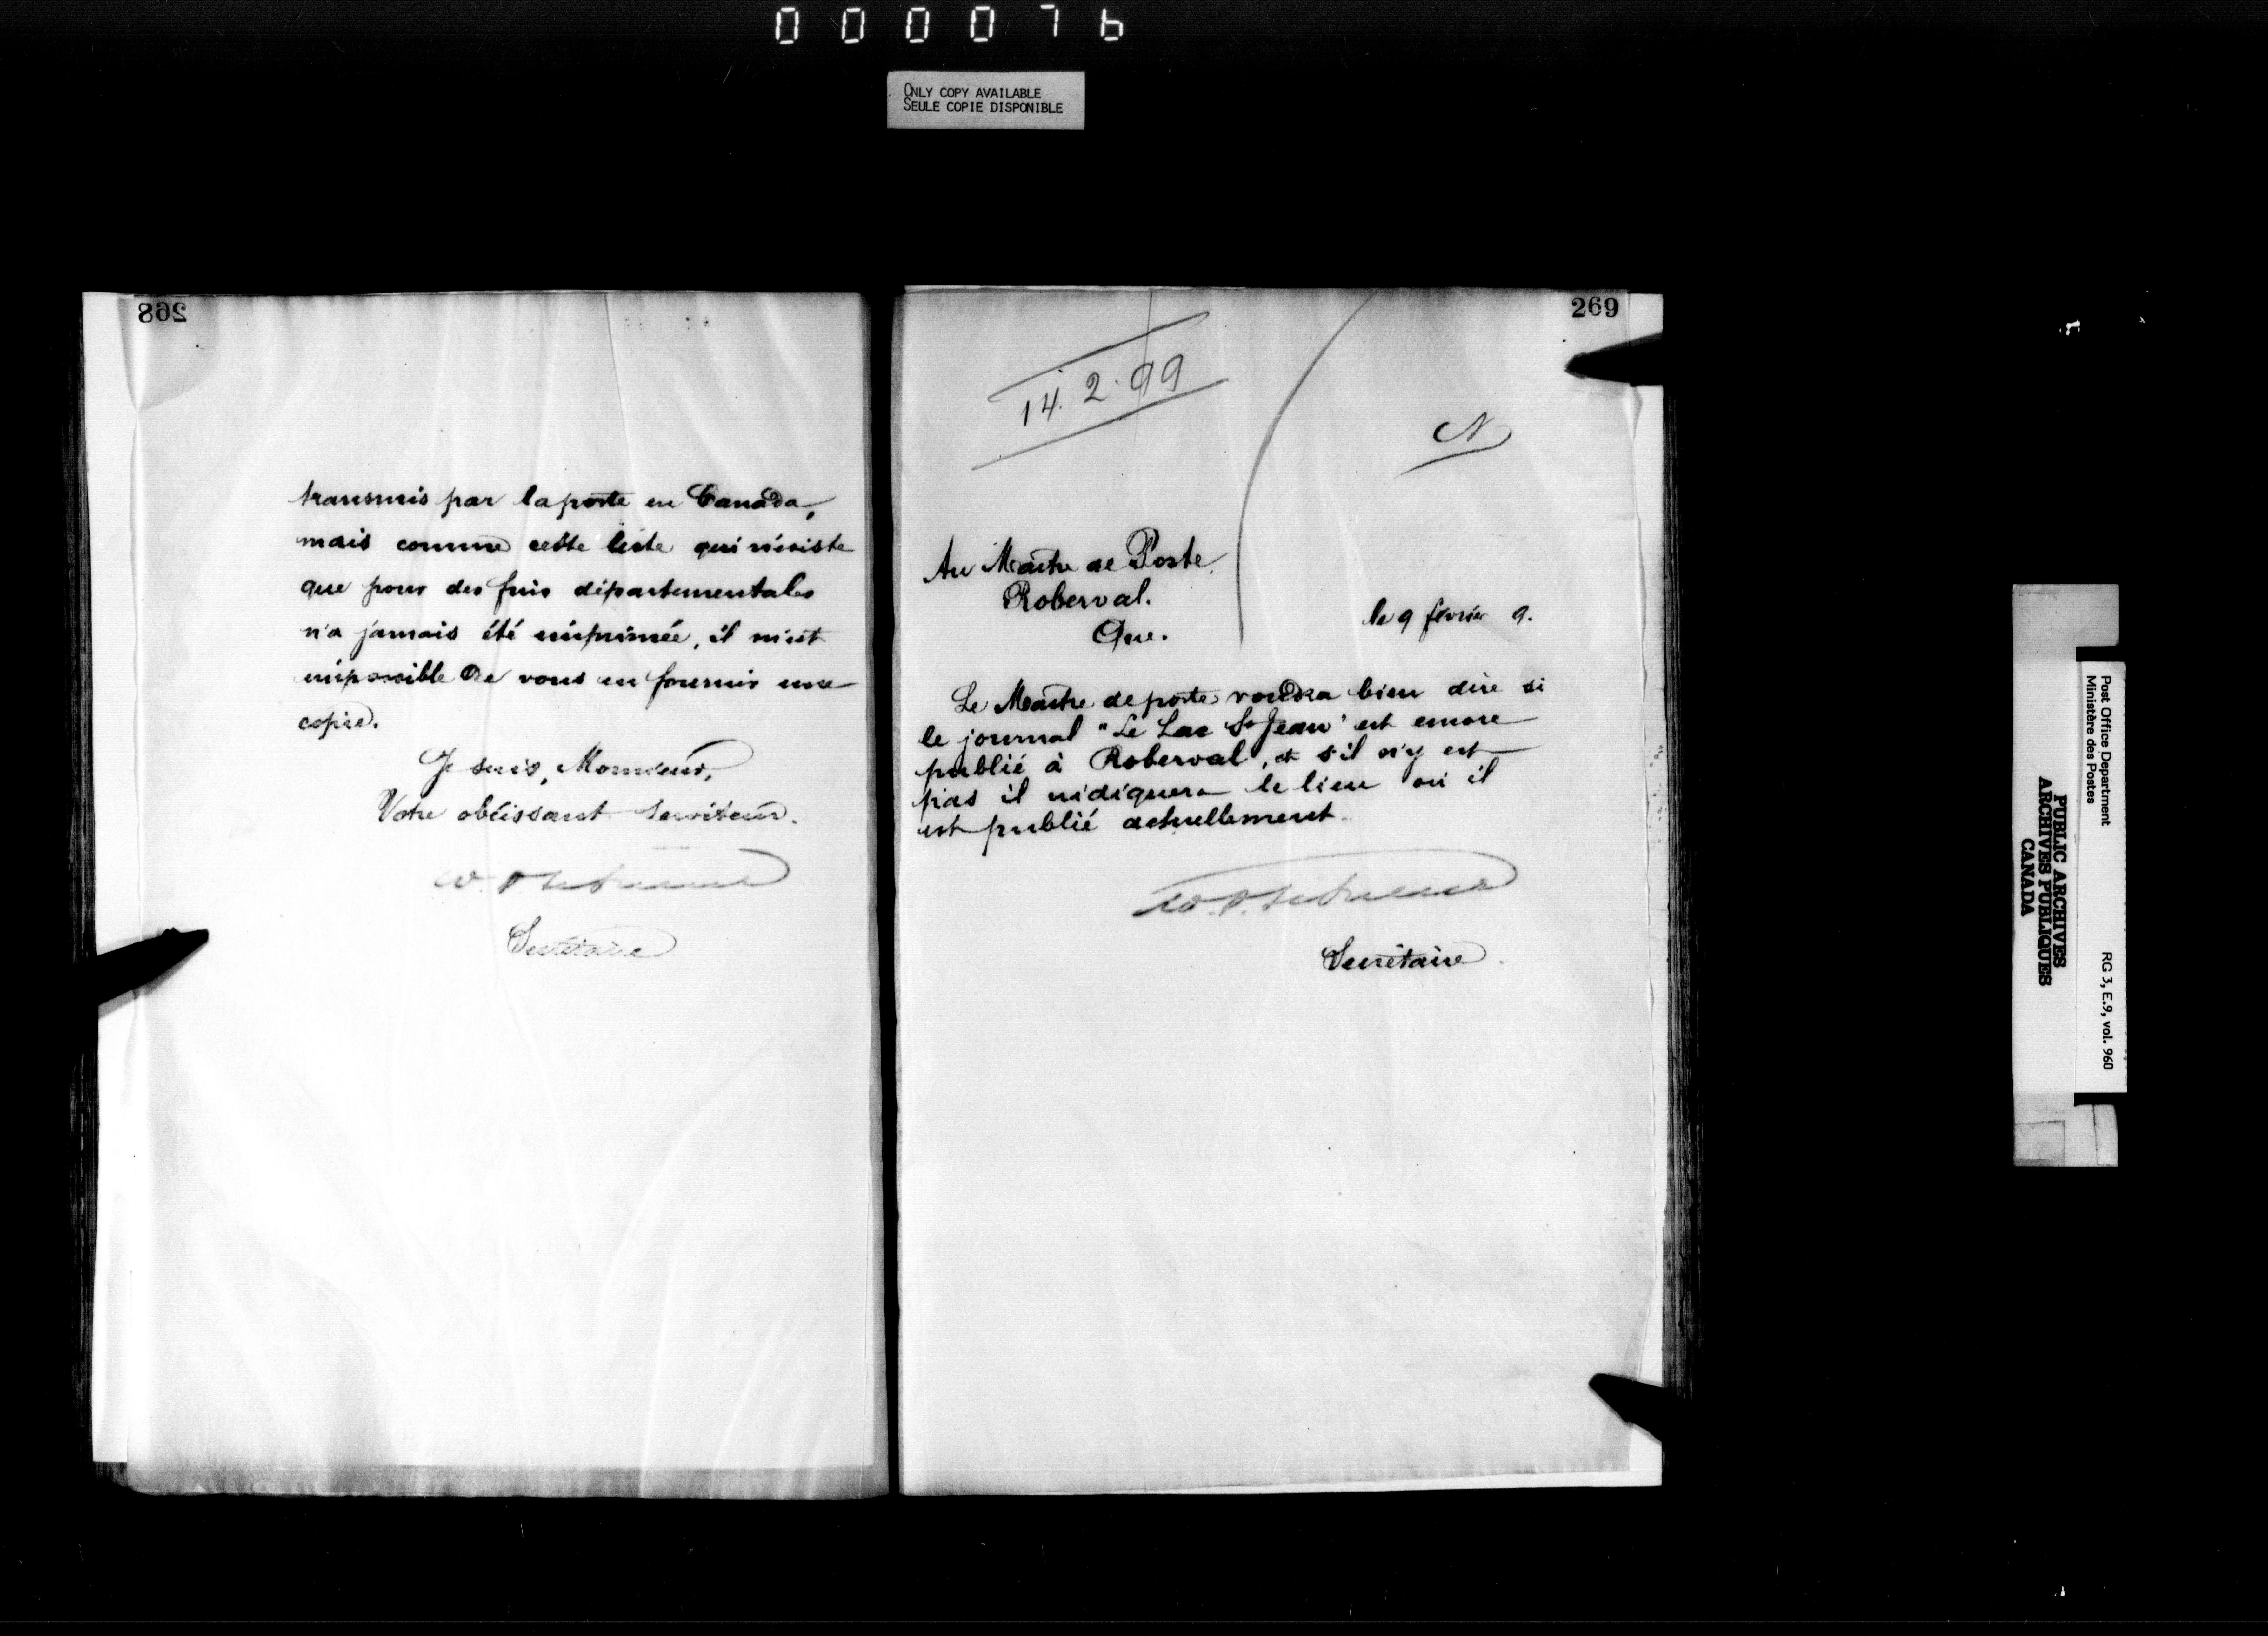 000076
ONLY COPY AVAILABLE
SEULE COPIE DISPONIBLE
268
transmis par la poste en Canada,
mais comme cette liste qui n'existe
que pour des fins départementales
n'a jamais été imprimée, il m'est
impossible de vous en fournir une
copie.
Je suis, Monsieur,
Votre obéissant serviteur.
Secrétaire
269
14.2.99
N
Au Maître de Poste
Roberval.
Que.
le 9 février 9.
Le Maître de poste voudra bien dire si
le journal "Le Lac St Jean" est encore
publié à Roberval, et s'il n'y est
pas il indiquera le lieu où il
est publié actuellement.
Secrétaire.
Post Office Department
Ministère des Postes
RG 3, E.9, vol. 960
PUBLIC ARCHIVES
ARCHIVES PUBLIQUES
CANADA